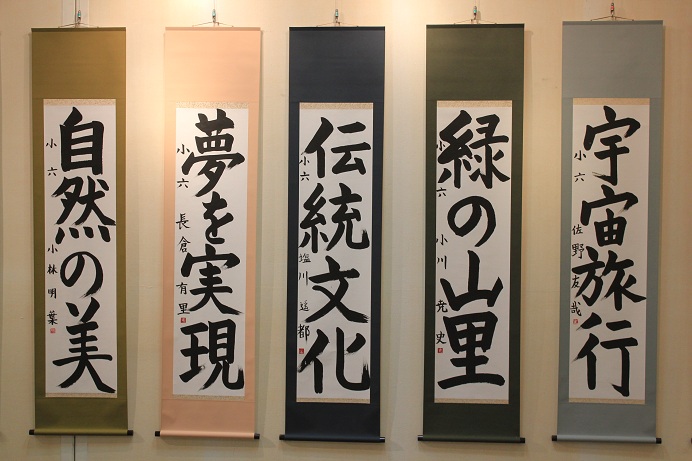 宇宙旅行
小六 佐野友哉
緑の山里
小六 小川
伝統文化
小六 塩川
夢を実現
小六 長倉有里
自然の美
小六 小林明葉